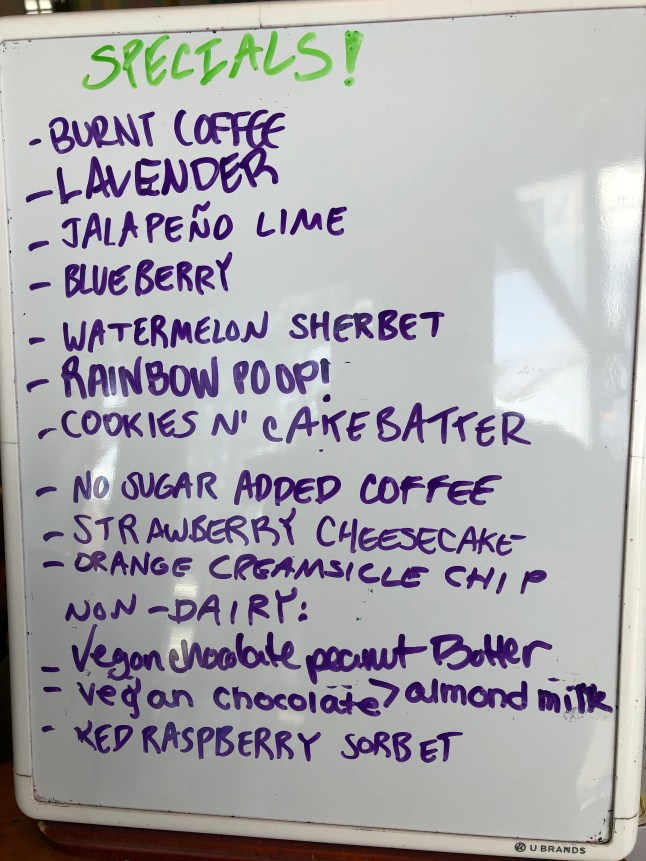 SPECIALS!
- BURNT COFFEE
- LAVENDER
- JALAPEÑO LIME
- BLUEBERRY
- WATERMELON SHERBET
- RAINBOW POOP!
- COOKIES N' CAKEBATTER
- NO SUGAR ADDED COFFEE
- STRAWBERRY CHEESECAKE
- ORANGE CREAMSICLE CHIP
NON-DAIRY:
- Vegan chocolate peanut Butter
- vegan chocolate > almond milk
- RED RASPBERRY SORBET
U BRANDS